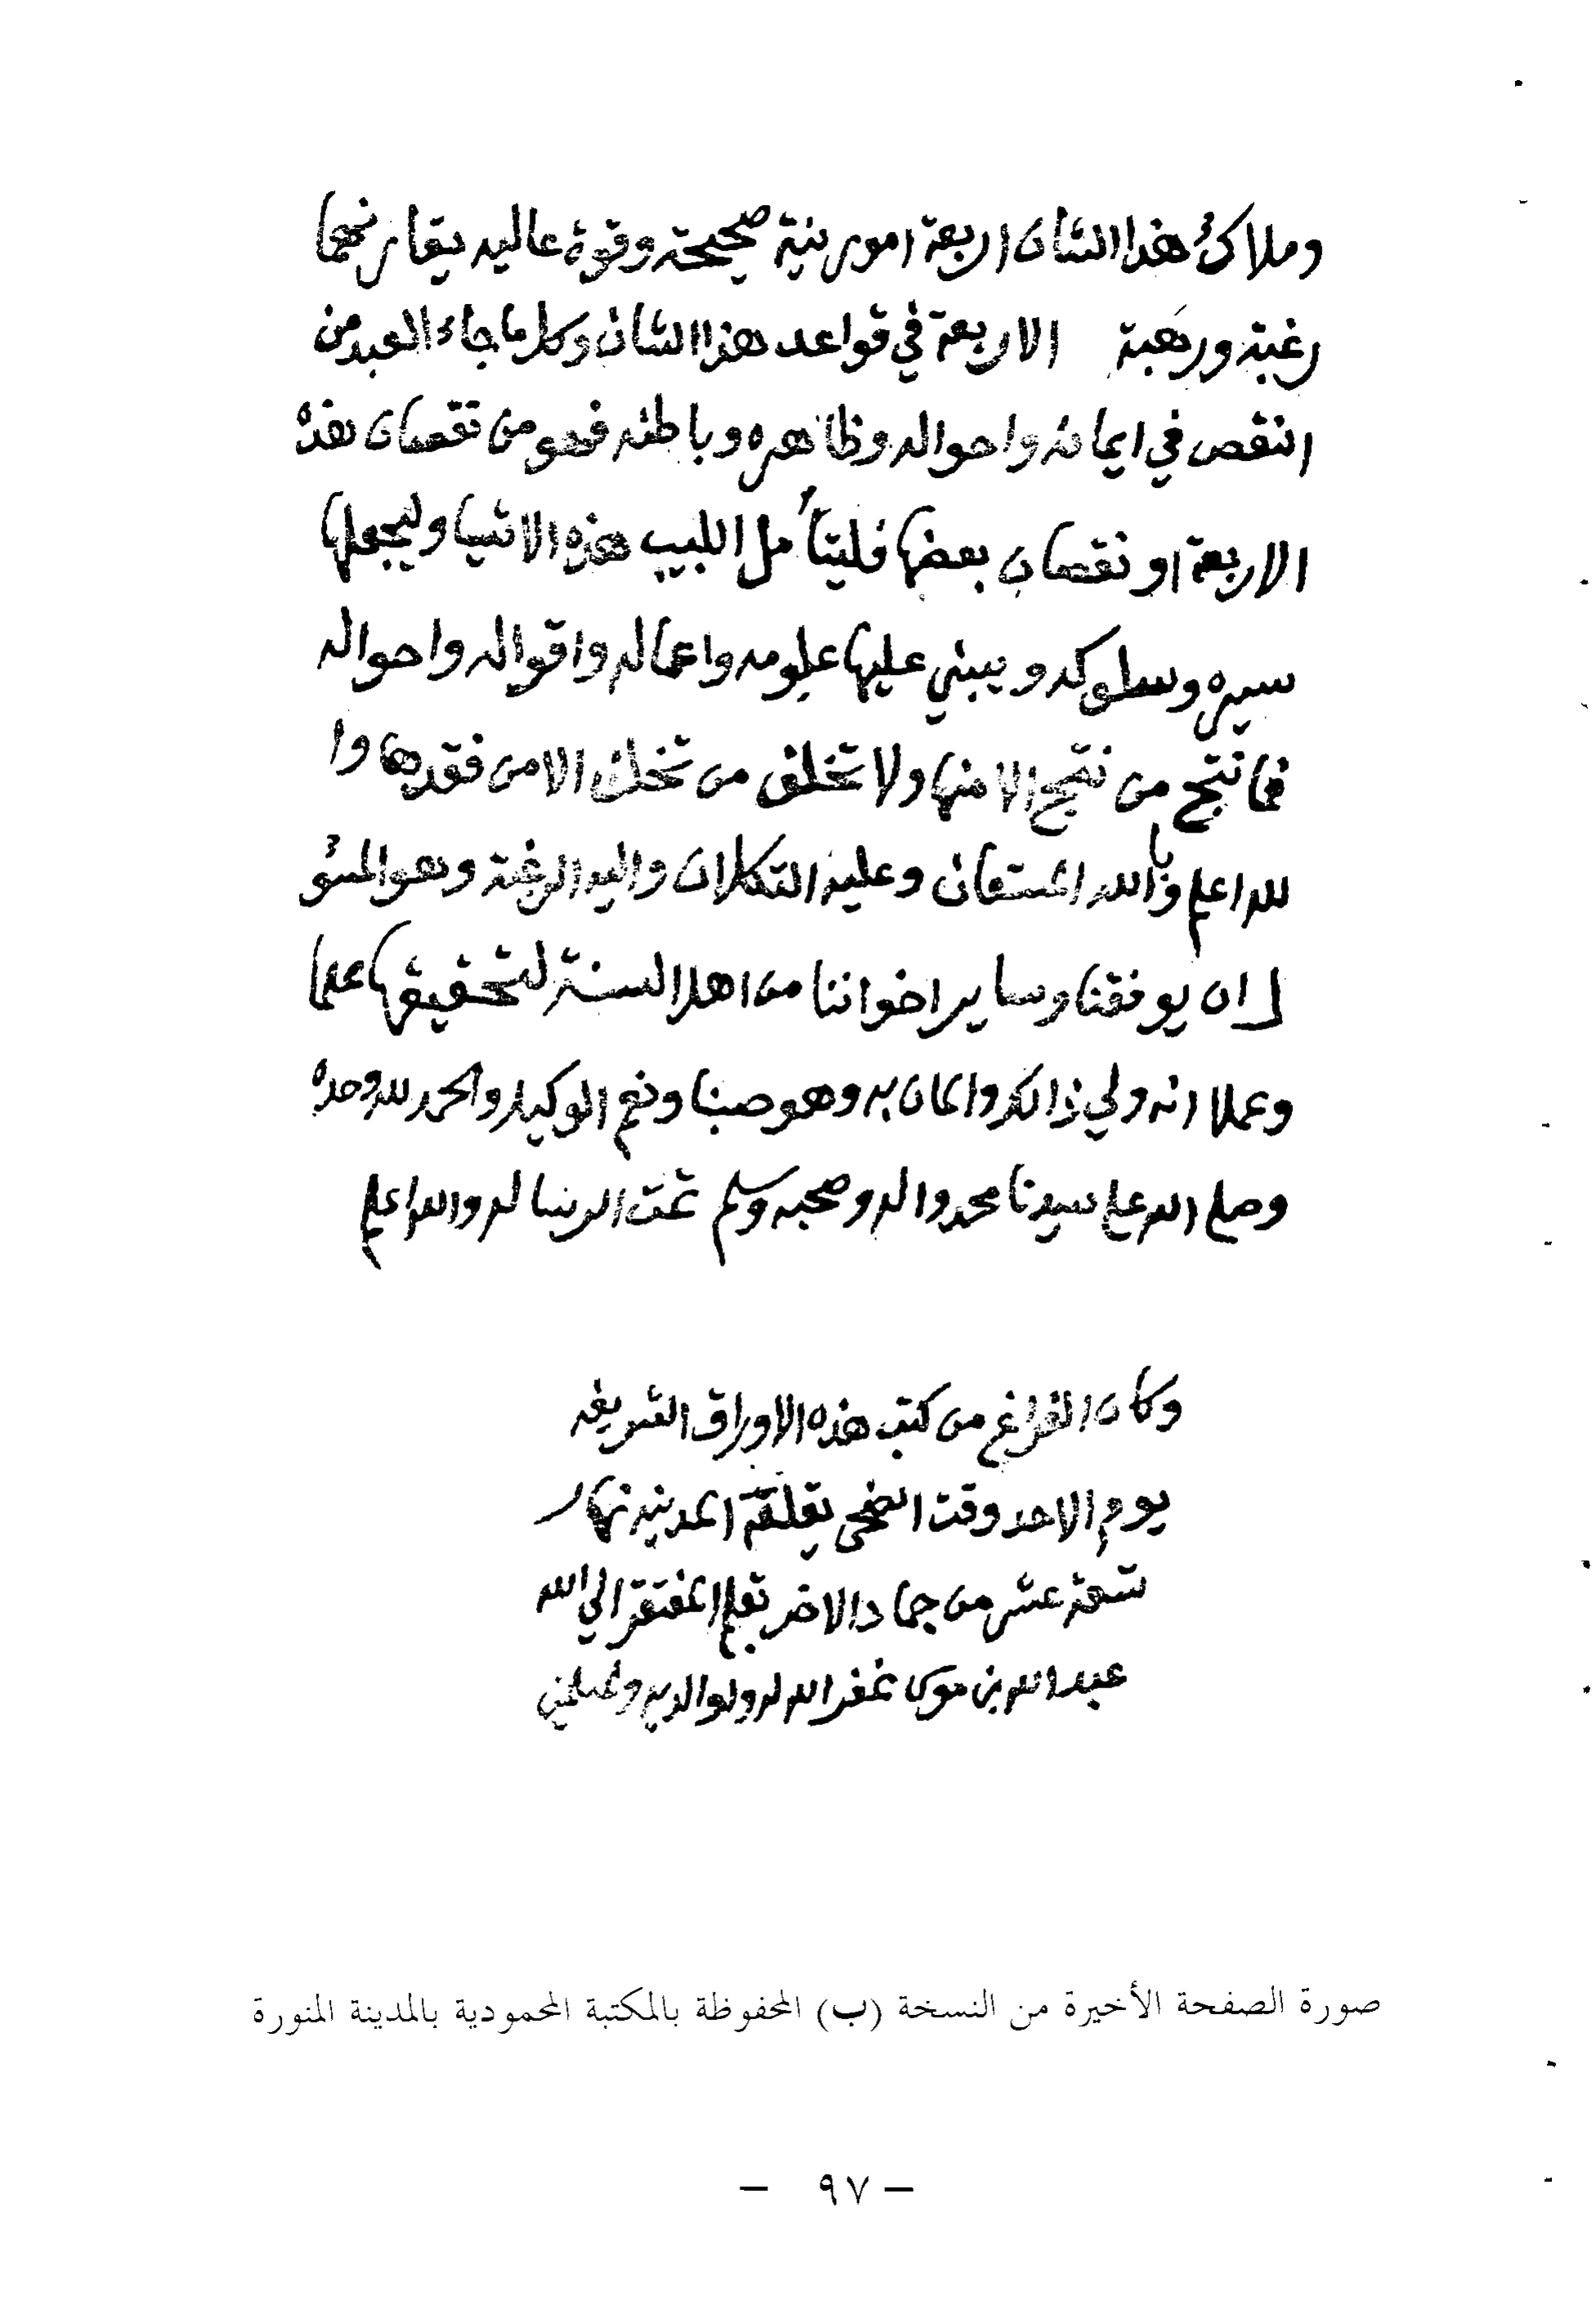 وملاكُ هذا الشان اربعة امور نية صحيحة وقوة عاليه يقارنهما
رغبة ورَهبة الاربعة في قواعد هذا الشان وكل ما جاء العبد من
النقص في ايمانه واحواله وظاهره وباطنه فهو من نقصان هذه
الاربعة او نقصان بعضها فليتأمل اللبيب هذه الاشيا وليجعلها
سيره وسلوكه ويبني عليها علومه واعماله واقواله واحواله
فما نتج من نتج الا منها ولا تخلف من تخلف الا من فقدها وا
لله اعلم وبالله المستعان وعليه التكلان واليه الرغبة وهو المسئو
ل ان يوفقنا وساير اخواننا من اهل السنة لتحقيقها علما
وعملا انه ولي ذالك والمان به وهو حسبنا ونعم الوكيل والحمد لله وحده
وصلي الله علي سيدنا محمد واله وصحبه وسلم تمت الرسالة والله اعلم
وكان الفراغ من كتب هذه الاوراق الشريفه
يوم الاحد وقت الضحى بقلقة المدينه نهار
تسعة عشر من جماد الاخر بقلم المفتقر الي الله
عبد الله بن موسى غفر الله له ولوالديه وللمسلمين
صورة الصفحة الأخيرة من النسخة (ب) المحفوظة بالمكتبة المحمودية بالمدينة المنورة
– ٩٧ –